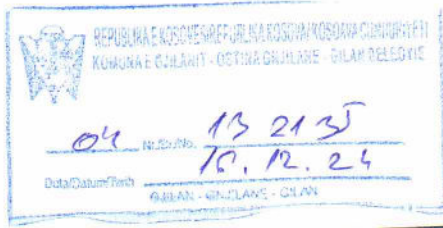 REPUBLIKA E KOSOVËS/REPUBLIKA KOSOVA/KOSOVA CUMHURİYETİ
KOMUNA E GJILANIT - OPŠTINA GNJILANE - GİLAN BELEDİYE
04 Nr./Br./No. 13 21 35
Data/Datum/Tarih 16. 12. 24
GJILAN - GNJILANE - GİLAN